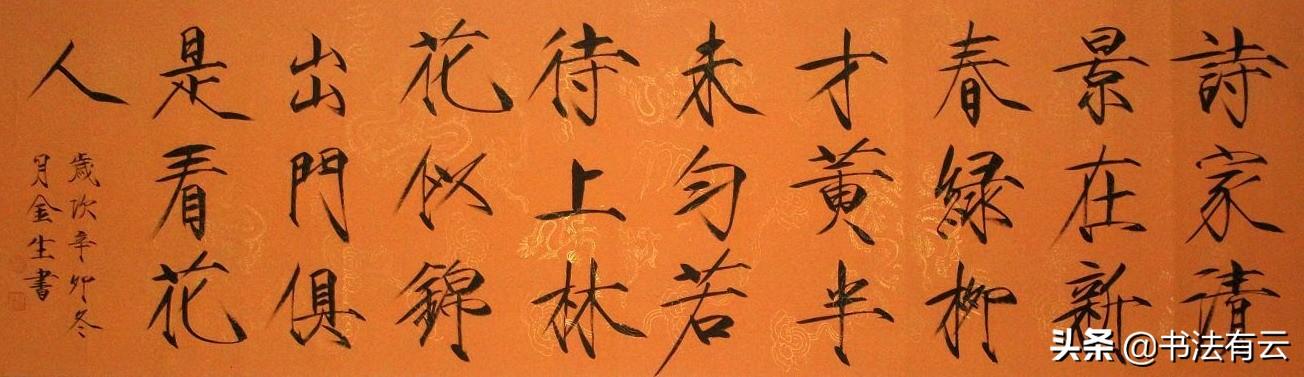 詩家清
景在新
春緑柳
才黄半
未匀若
待上林
花似錦
出門俱
是看花
人
歲次辛卯冬
月金生書
头条 @书法有云